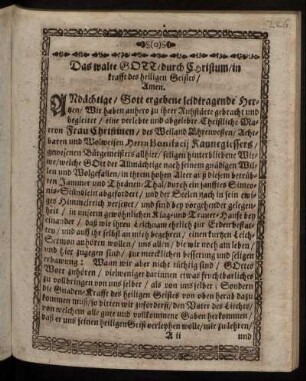 Das walte GOTT / durch Christum / in
krafft des heiligen Geistes /
Amen.
ANdächtige / Gott ergebene leidtragende Her-
tzen / Wir haben anhero zu ihrer Ruhstätte gebracht und
begleitet / eine verlebte und abgelebte Christliche Ma-
tron Frau Christinen / des Welland Ehrenvesten / Acht-
baren und Wolweisen Herrn Bonifacij Kannegiessers /
gewesenen Bürgemeisters allhier / seligen hinterbliebene Wit-
we / welche GOtt der Allmächtige nach seinem gnädigen Wil-
len und Wolgefallen / in ihrem hohen Alter aus diesem betrüb-
ten Jammer und Thränen-Thal / durch ein sanfftes Simeo-
nis-Stündelein abgefordert / und der Seelen nach in sein ewi-
ges Himmelreich versetzet / und sind bey vorgehender gelegen-
heit / in unserm gewöhnlichen Klag- und Trauer-Hause bey
einander / daß wir ihren Leichnam ehrlich zur Erden bestat-
ten / und auff ihr selbst anhero begehren / einen kurtzen Leichen-
Sermon anhören wollen / uns allen / die wir noch am leben /
und hier zugegen sind / zur mercklichen besserung und seligen
erbauung: Wann wir aber nicht tüchtig sind / GOttes
Wort zuhören / vielweniger darinnen etwas fruchtbarliches
zu vollbringen von uns selber / als von uns selber; Sondern
die Gnaden-Krafft des heiligen Geistes von oben herab dazu
kommen muß / so bitten wir zuforderst / den Vater des Liechts /
von welchem alle gute und vollkommene Gaben herkommen /
daß er uns seinen heiligen Geist verleyhen wolle / mir zu lehren /
A ii und